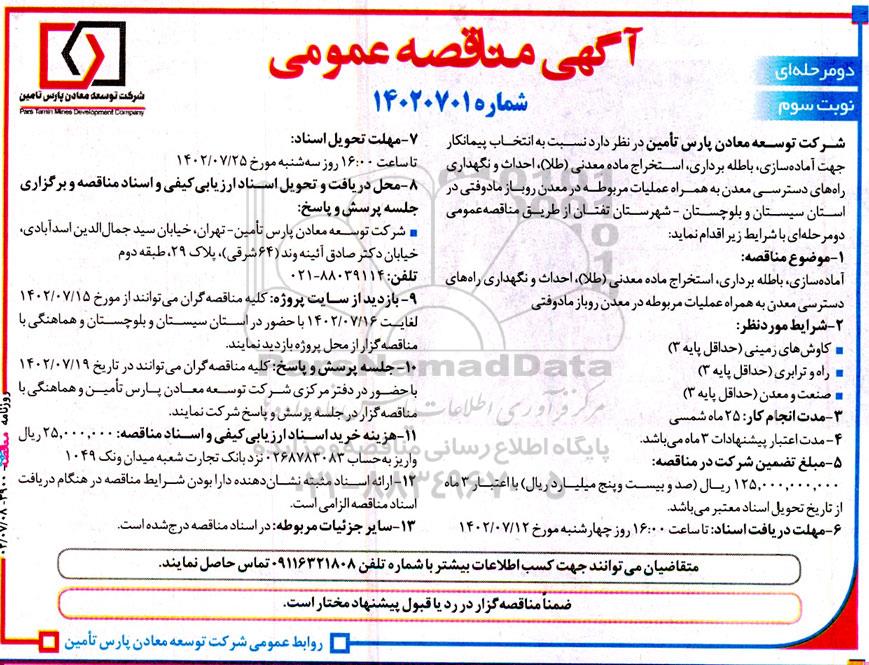 آگهی مناقصه عمومی
شماره ۱۴۰۲۰۷۰۱
دومرحله‌ای
نوبت سوم
شرکت توسعه معادن پارس تامین
Pars Tamin Mines Development Company
شرکت توسعه معادن پارس تأمین در نظر دارد نسبت به انتخاب پیمانکار
جهت آماده‌سازی، باطله برداری، استخراج ماده معدنی (طلا)، احداث و نگهداری
راه‌های دسترسی معدن به همراه عملیات مربوطه در معدن روباز مادوفتی در
استان سیستان و بلوچستان - شهرستان تفتان از طریق مناقصه‌عمومی
دومرحله‌ای با شرایط زیر اقدام نماید:
۱-موضوع مناقصه:
آماده‌سازی، باطله برداری، استخراج ماده معدنی (طلا)، احداث و نگهداری راه‌های
دسترسی معدن به همراه عملیات مربوطه در معدن روباز مادوفتی
۲-شرایط مورد نظر:
کاوش‌های زمینی (حداقل پایه ۳)
راه و ترابری (حداقل پایه ۳)
صنعت و معدن (حداقل پایه ۳)
۳-مدت انجام کار: ۲۵ ماه شمسی
۴-مدت اعتبار پیشنهادات ۳ ماه می‌باشد.
۵-مبلغ تضمین شرکت در مناقصه:
۱۲۵,۰۰۰,۰۰۰,۰۰۰ ریال (صد و بیست و پنج میلیارد ریال) با اعتبار ۳ ماه
از تاریخ تحویل اسناد معتبر می‌باشد.
۶-مهلت دریافت اسناد: تا ساعت ۱۶:۰۰ روز چهارشنبه مورخ ۱۴۰۲/۰۷/۱۲
۷-مهلت تحویل اسناد:
تا ساعت ۱۶:۰۰ روز سه‌شنبه مورخ ۱۴۰۲/۰۷/۲۵
۸-محل دریافت و تحویل اسناد ارزیابی کیفی و اسناد مناقصه و برگزاری
جلسه پرسش و پاسخ:
شرکت توسعه معادن پارس تأمین- تهران، خیابان سید جمال‌الدین اسدآبادی،
خیابان دکتر صادق آئینه وند (۶۴ شرقی)، پلاک ۲۹، طبقه دوم
تلفن: ۸۸۰۳۹۱۱۴-۰۲۱
۹- بازدید از سایت پروژه: کلیه مناقصه‌گران می‌توانند از مورخ ۱۴۰۲/۰۷/۱۵
لغایت ۱۴۰۲/۰۷/۱۶ با حضور در استان سیستان و بلوچستان و هماهنگی با
مناقصه‌گزار از محل پروژه بازدید نمایند.
۱۰- جلسه پرسش و پاسخ: کلیه مناقصه‌گران می‌توانند در تاریخ ۱۴۰۲/۰۷/۱۹
با حضور در دفتر مرکزی شرکت توسعه معادن پارس تأمین و هماهنگی با
مناقصه‌گزار در جلسه پرسش و پاسخ شرکت نمایند.
۱۱-هزینه خرید اسناد ارزیابی کیفی و اسناد مناقصه: ۲۵,۰۰۰,۰۰۰ ریال
واریز به حساب ۰۲۶۸۷۸۳۰۸۳ نزد بانک تجارت شعبه میدان ونک ۱۰۴۹
۱۲-ارائه اسناد مثبته نشان‌دهنده دارا بودن شرایط مناقصه در هنگام دریافت
اسناد مناقصه الزامی است.
۱۳-سایر جزئیات مربوطه: در اسناد مناقصه درج شده است.
متقاضیان می‌توانند جهت کسب اطلاعات بیشتر با شماره تلفن ۰۹۱۱۶۳۲۱۸۰۸ تماس حاصل نمایند.
ضمناً مناقصه‌گزار در رد یا قبول پیشنهاد مختار است.
روابط عمومی شرکت توسعه معادن پارس تأمین
پایگاه اطلاع رسانی مناقصه و مزایده
۰۲۱-۸۸۳۴۹۶۷۰-۵